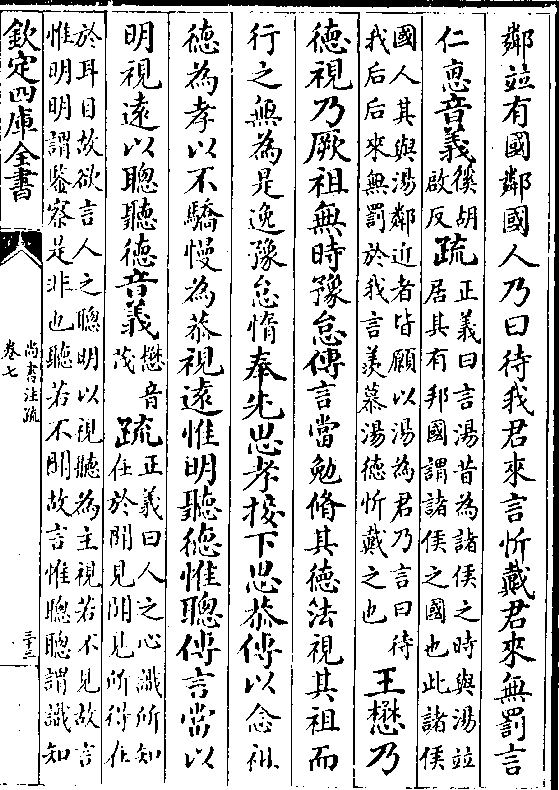 鄰並有國鄰國人乃曰待我君來言忻戴君來無罰言
仁惠音義徯胡啟反疏正義曰言湯昔為諸侯之時與湯並居其有邦國謂諸侯之國也此諸侯
國人其與湯鄰近者皆願以湯為君乃言曰待我后后來無罰於我言羨慕湯德忻戴之也王懋乃
德視乃厥祖無時豫怠傳言當勉脩其德法視其祖而
行之無為是逸豫怠惰奉先思孝接下思恭傳以念祖
德為孝以不驕慢為恭視遠惟明聽德惟聰傳言當以
明視遠以聰聽德音義懋音茂疏正義曰人之心識所知在於聞見聞見所得在
於耳目故欲言人之聰明以視聽為主視若不見故言惟明明謂鑒察是非也聽若不聞故言惟聰聰謂識知
欽定四庫全書
尚書注疏
卷七